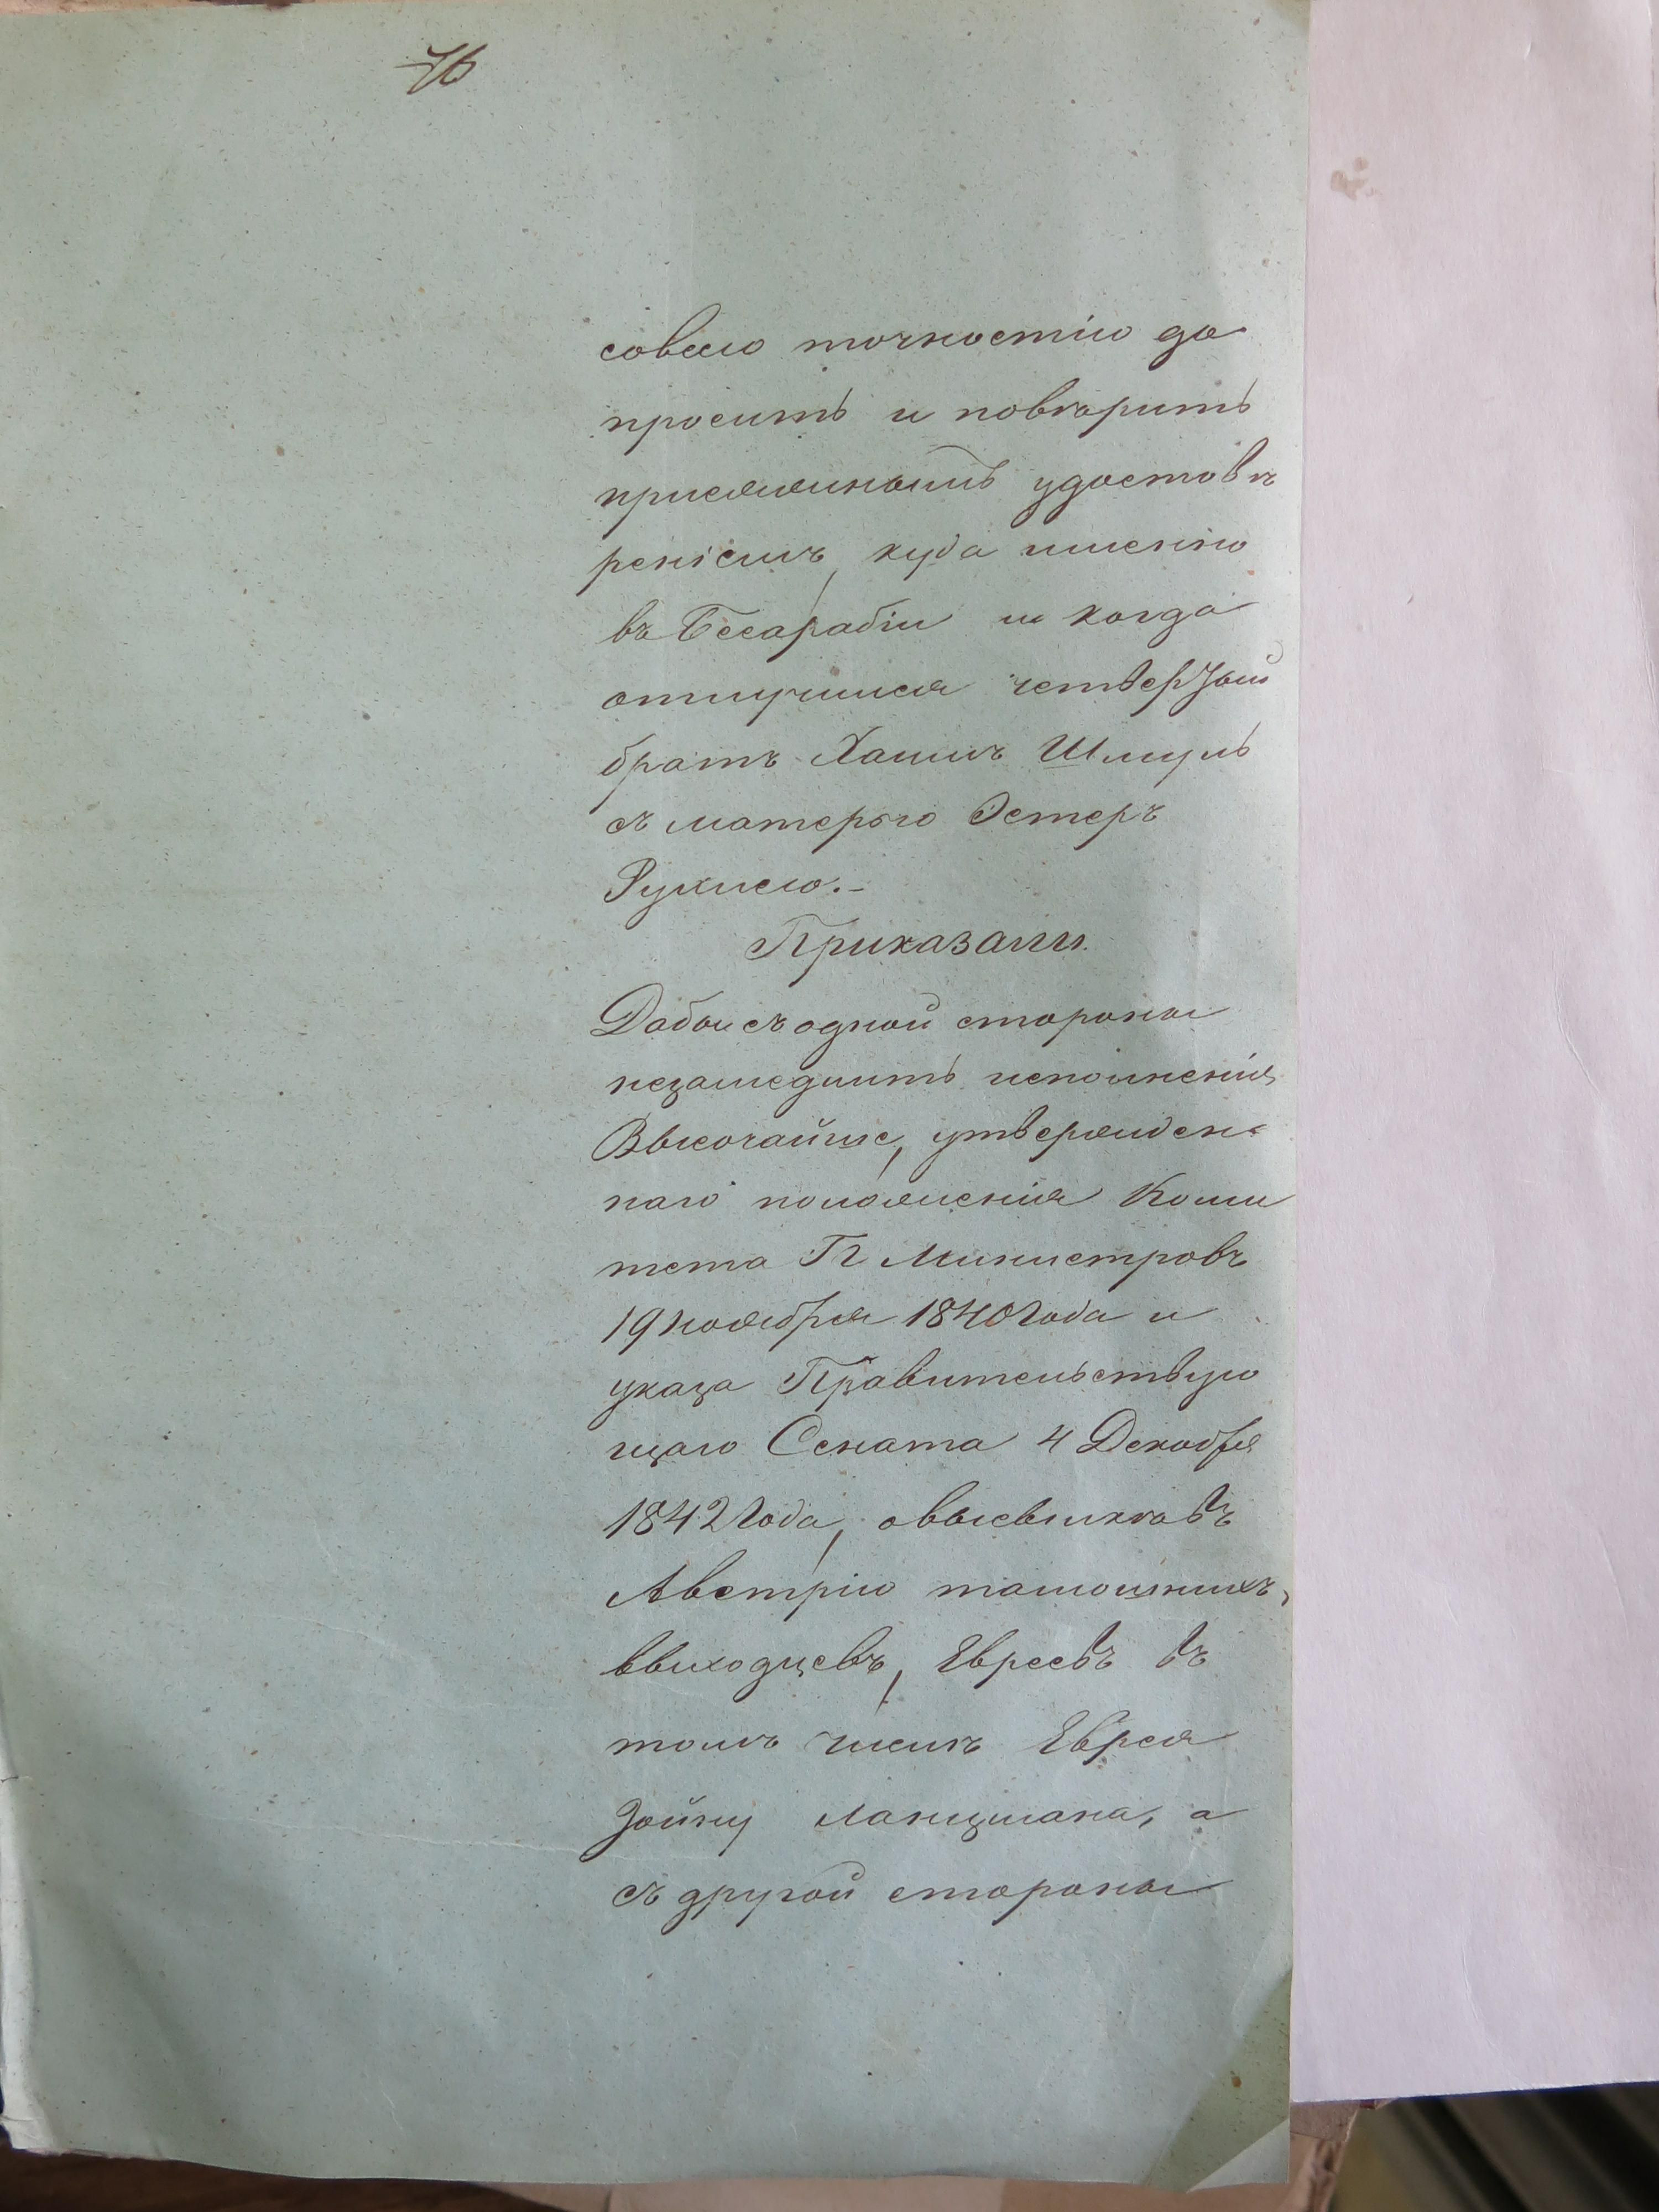 76
совсею точностію до
просить и повѣрить
присяжнымъ удостовѣ
реніемъ, куда именно
въ Бесарабіи и когда
отлучился четвертый
братъ Хаимъ Шмуль
съ матерью Эстеръ
Рухлею.-
Приказали.
Дабы съ одной стороны
незамедлить исполненія
Высочайше, утвержден-
наго положенія Коми
тета Г Министровъ
19 ноября 1840 года и
указа Правительствую
щаго Сената 4 Декабря
1842 года, овысылкѣ въ
Австрію тамошнихъ,
выходцевъ, Евреевъ въ
томъ числѣ Еврея
Зойну Ланцмана, а
съ другой стороны